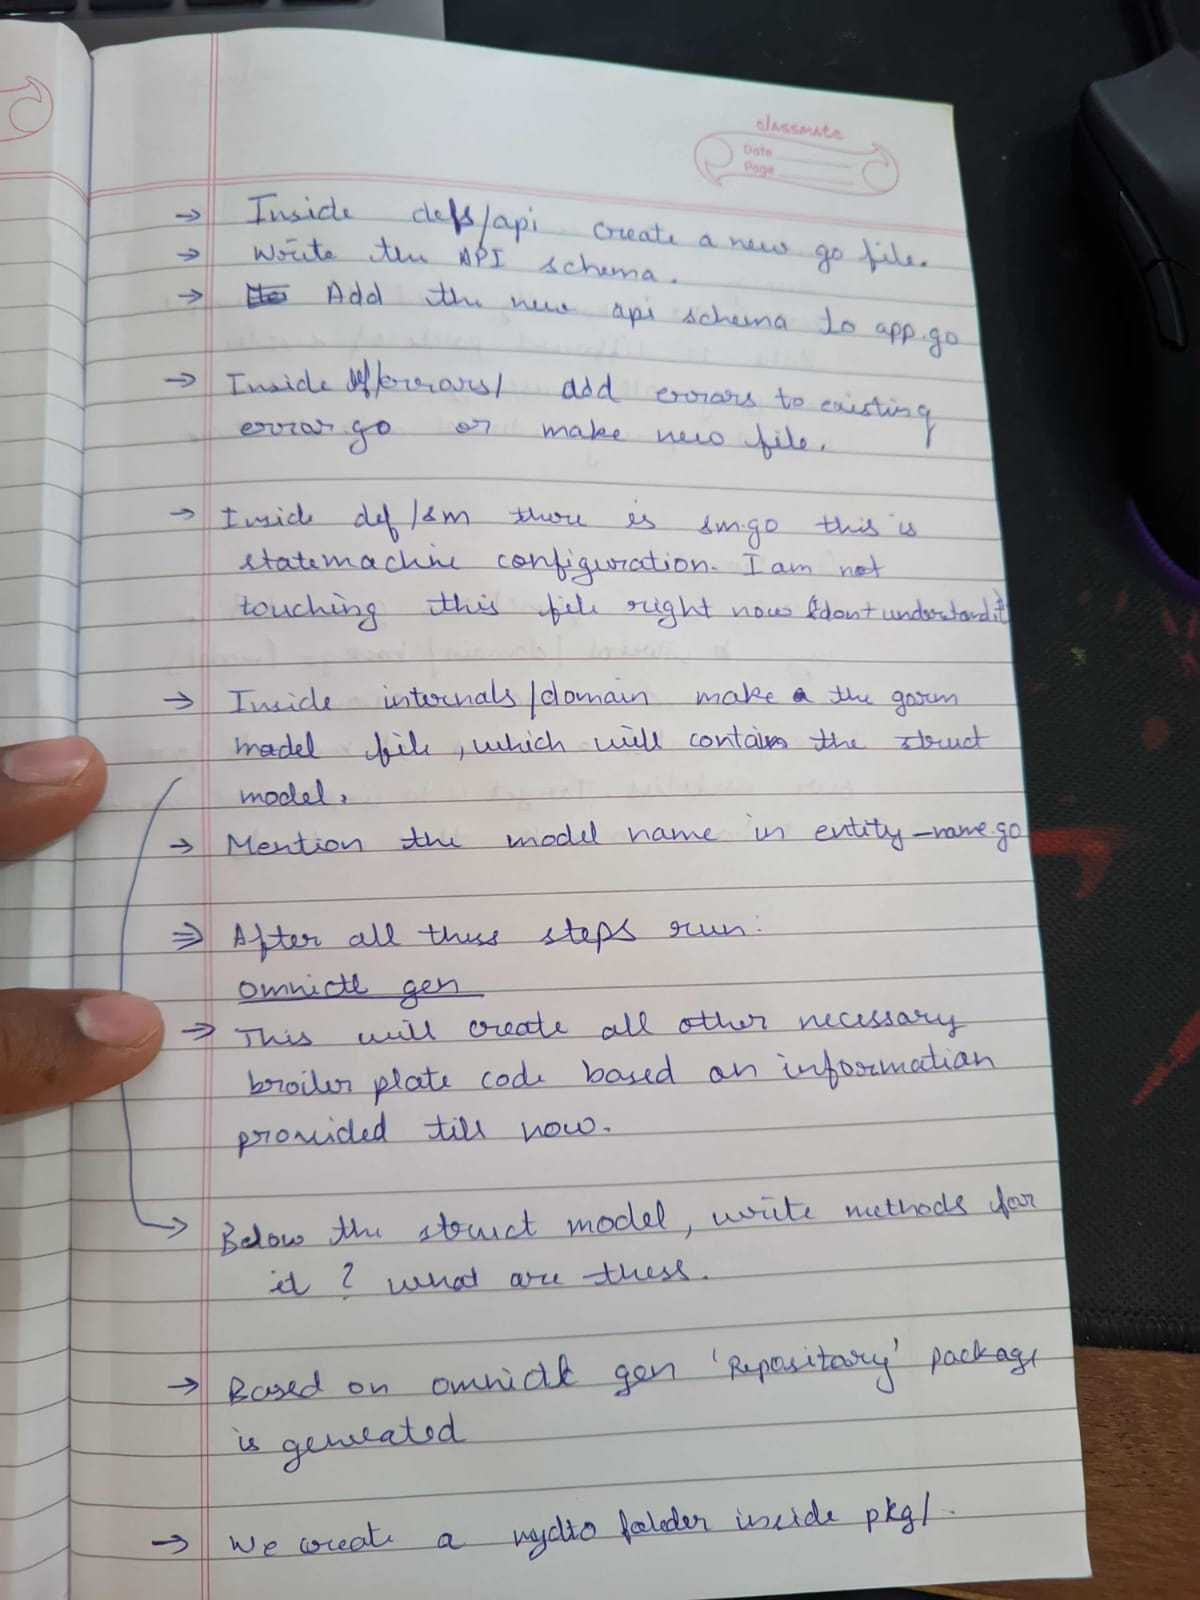 classmate
Date
Page
→ Inside defs/api create a new go file.
→ Write the API schema.
→ Add the new api schema to app.go
→ Inside def/errors/ add errors to existing
error.go or make new file.
→ Inside def/sm there is sm.go this is
statemachine configuration. I am not
touching this file right now I dont understand it
→ Inside internals/domain make the gorm
model file, which will contain the struct
model.
→ Mention the model name in entity-name.go
⇒ After all thess steps run:
omnictl gen
→ This will create all other necessary
broiler plate code based on information
provided till now.
→ Below the struct model, write methods for
it ? what are thess.
→ Based on omnictl gen 'Repository' package
is generated
→ We create a mydto folder inside pkg/.